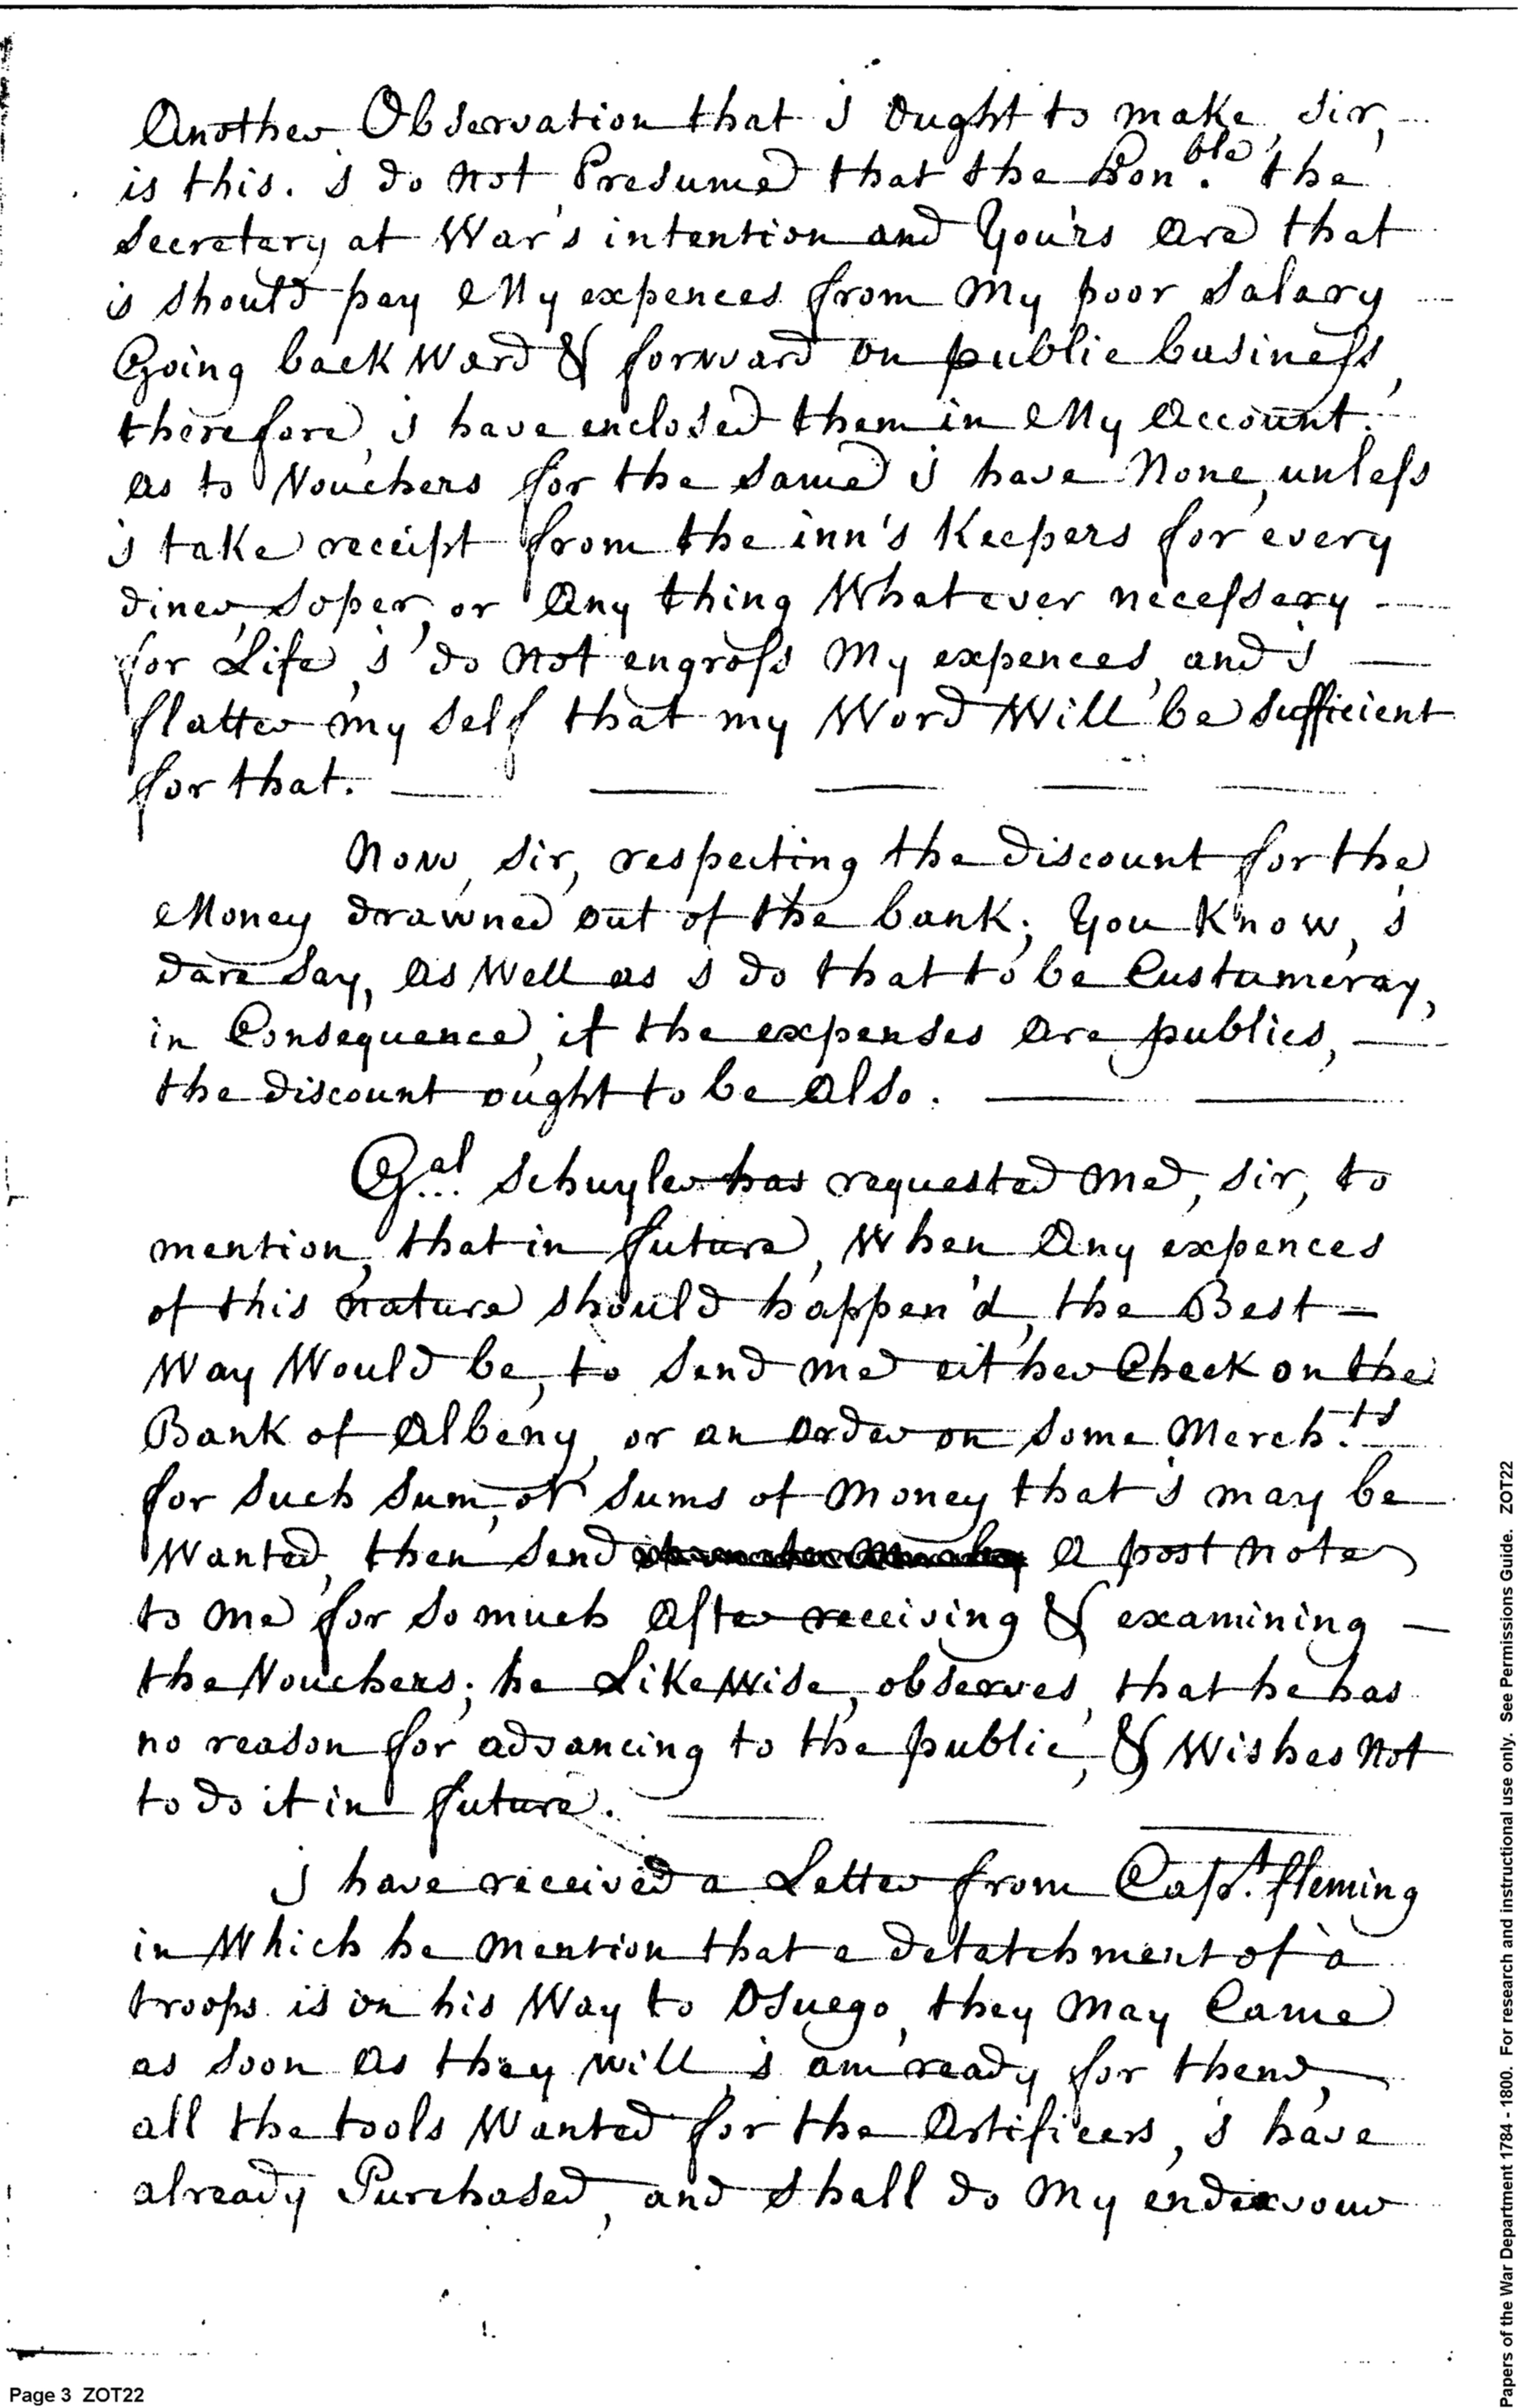 Another Observation that i Ought to make, sir,
is this. i do Not Presume that the Hon.ble the
Secretary at War's intention and Your's Are that
i should pay My expences from My poor Salary
Going back Ward & forward on public business,
therefore, i have enclosed them in My Account.
As to Vouchers for the Same i have None, unless
i take receipt from the inn's Keepers for every
diner, Soper, or Any thing Whatever necessary
for Life, i do Not engross My expences, and i
flatter my self that my Word Will be Sufficient
for that.
Now, Sir, respecting the discount for the
Money drawned out of the bank; You Know, i
dare Say, As Well as i do that to be Custumeray,
in Consequence, if the expenses Are publics,
the discount ought to be Also.
G.al Schuyler has requested Me, Sir, to
mention, that in future, When Any expences
of this nature should happen'd, the Best
Way Would be, to Send me either Check on the
Bank of Albeny, or an Order on Some Merch.ts
for Such Sum, or Sums of Money that i may be
Wanted, then Send A post note
to Me for So much After receiving & examining
the Vouchers; he LikeWise, observes, that he has
no reason for advancing to the public, & Wishes Not
to do it in future.
i have received a Letter from Capt. fleming
in Which he Mention that a detatchment of a
troops is on his Way to Osuego, they May Came
as Soon As they will, i am ready for them,
all the tools Wanted for the Artificers, i have
already Purchased, and Shall do My endeavour
Page 3 ZOT22
Papers of the War Department 1784 - 1800. For research and instructional use only. See Permissions Guide. ZOT22